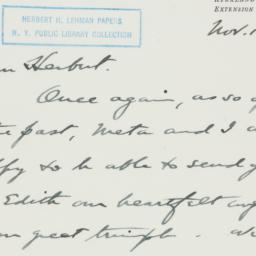 HERBERT H. LEHMAN PAPERS
N. Y. PUBLIC LIBRARY COLLECTION
EXTENSION
Nov. 1
Herbert.
Once again, as so
past, Meta and I a
to be able to send
Edith our heartfelt
great triumph.